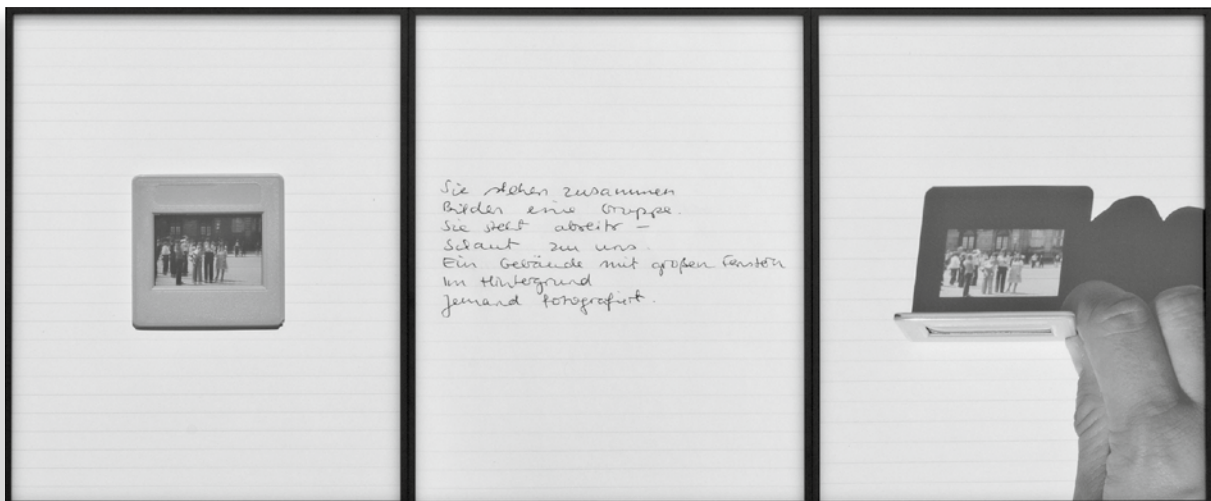 Sie stehen zusammen
Bilden eine Gruppe.
Sie steht abseits –
Schaut zu uns.
Ein Gebäude mit großen Fenstern
im Hintergrund
Jemand fotografiert.